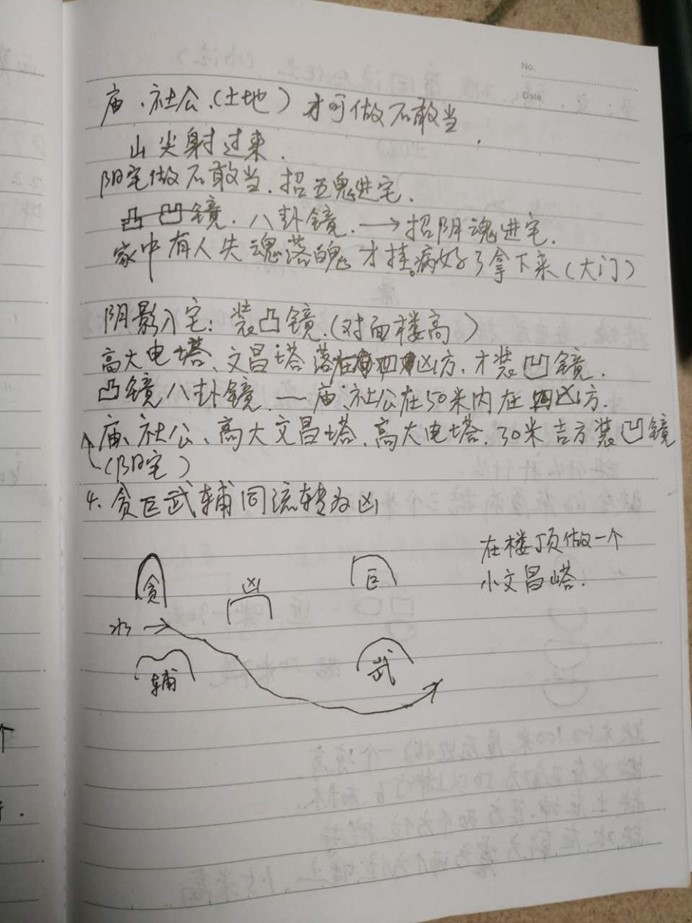 No.
Date
庙、社公、(土地)才可做石敢当.
山尖射过来.
阳宅做石敢当.招五鬼进宅.
凸凹镜.八卦镜.→招阴魂进宅.
家中有人失魂落魄才挂。病好了拿下来(大门)
阴影入宅:装凸镜.(对面楼高)
高大电塔、文昌塔落在凶方.才装凹镜.
凸镜八卦镜.—庙、社公在50米内在凶方.
庙、社公、高大文昌塔、高大电塔.30米吉方装凹镜
(阳宅)
4.贪巨武辅同流转为凶
在楼顶做一个
小文昌塔.
贪
凶
巨
水→
辅
武